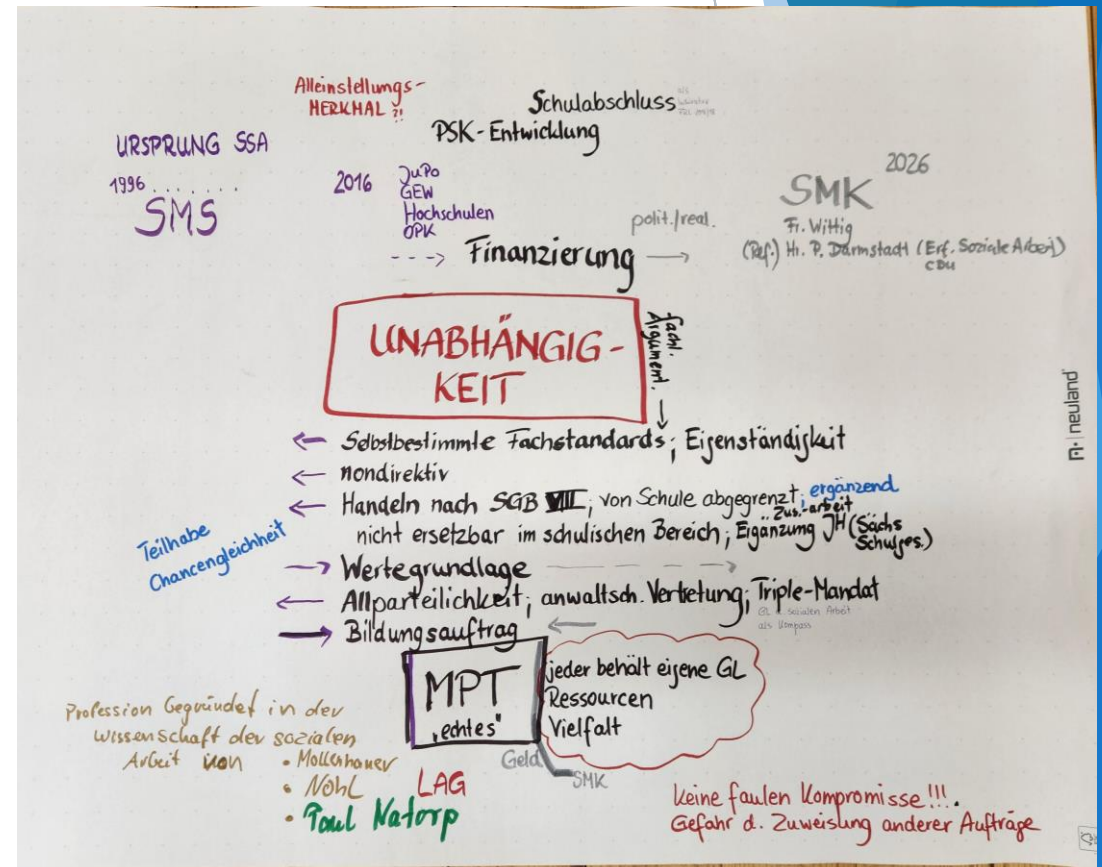 Alleinstellungs-
MERKMAL ?!
Schulabschluss
als
PSK-Entwicklung
URSPRUNG SSA
1996 . . . . . . .
SMS
2016
JuPo
GEW
Hochschulen
OPK
---> Finanzierung →
polit./real.
2026
SMK
Fr. Wittig
(Ref.) Hr. P. Darmstadt (Erf. Soziale Arbeit)
CDU
UNABHÄNGIG-
KEIT
fachl.
Argument.
← Selbstbestimmte Fachstandards; Eigenständigkeit
← nondirektiv
← Handeln nach SGB VIII; von Schule abgegrenzt; ergänzend
Zus.-arbeit
nicht ersetzbar im schulischen Bereich; Ergänzung JH (Sächs
Schulges.)
Teilhabe
Chancengleichheit
→ Wertegrundlage
← Allparteilichkeit; anwaltsch. Vertretung; Triple-Mandat
GL d. sozialen Arbeit
als Kompass
→ Bildungsauftrag ←
MPT
"echtes"
jeder behält eigene GL
Ressourcen
Vielfalt
Geld
SMK
Profession Gegründet in der
Wissenschaft der sozialen
Arbeit von
• Mollenhauer
• Nohl
• Paul Natorp
LAG
keine faulen Kompromisse!!!.
Gefahr d. Zuweisung anderer Aufträge
neuland